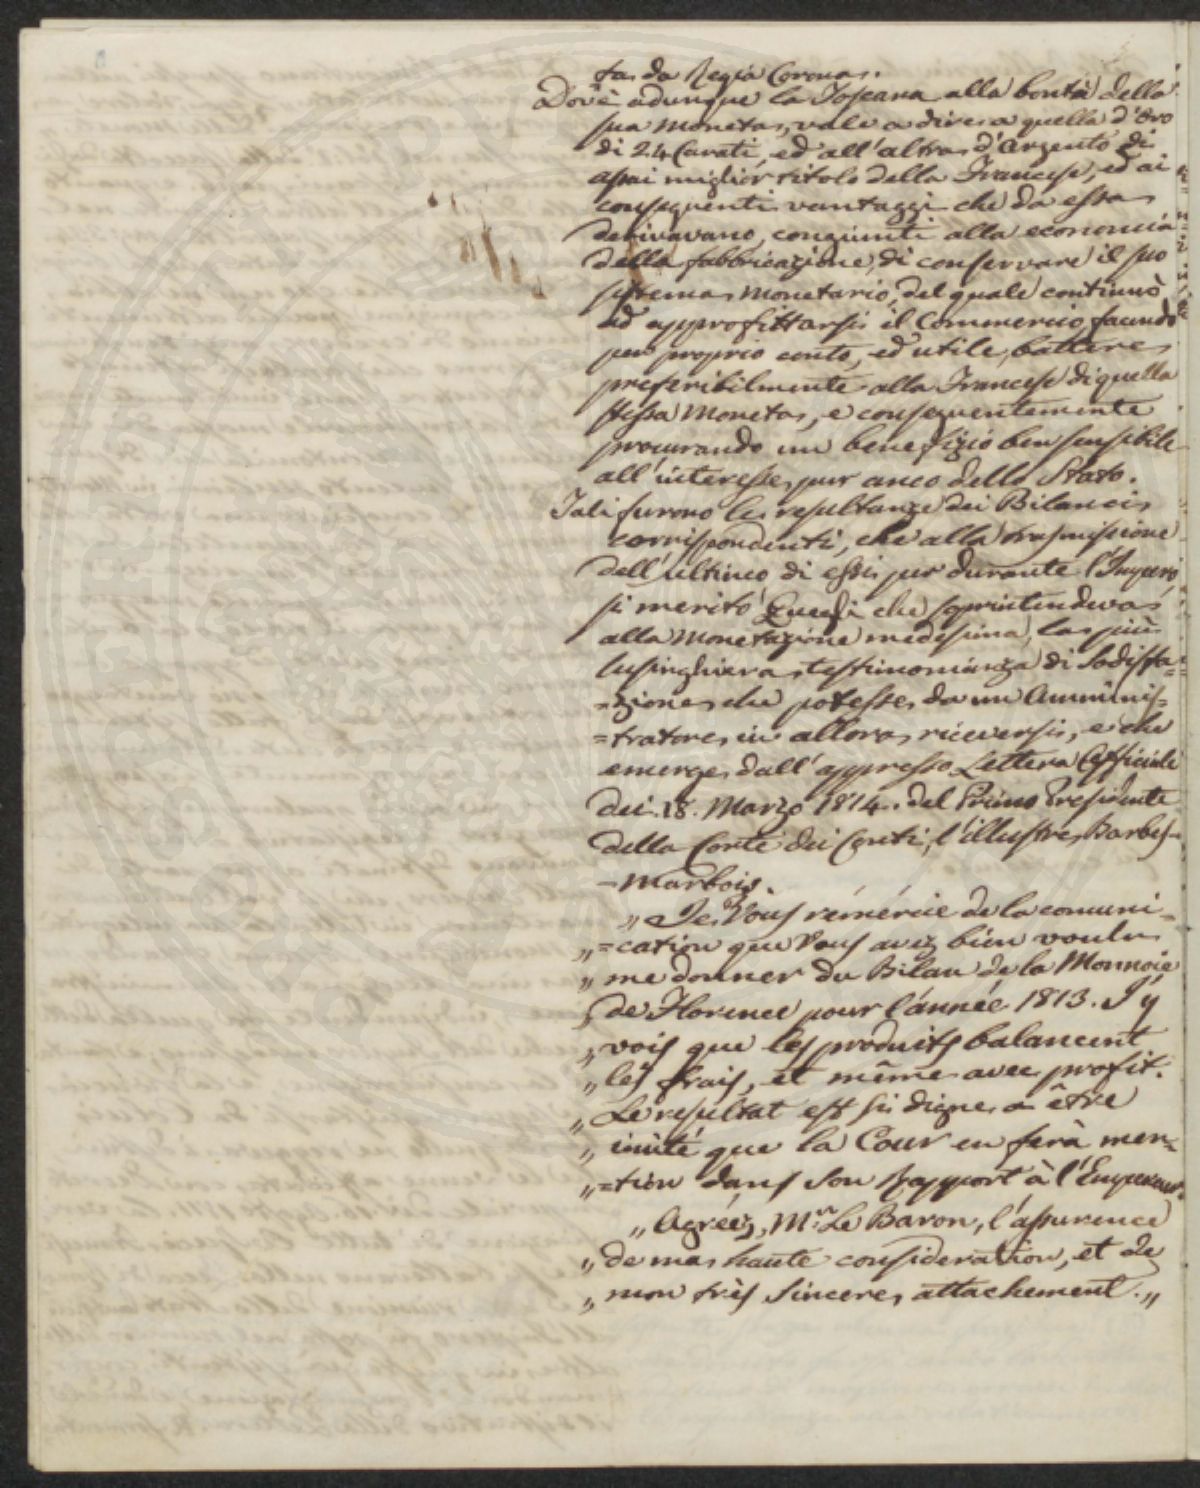 ta da Regia Corona.
Dovè adunque la Toscana alla bontà della
sua Moneta, vale a dire a quella d'Oro
di 24 Carati, ed all'altra d'Argento di
assai miglior titolo della Francese, ed ai
conseguenti vantaggi che da essa
derivavano, congiunti alla economia
della fabbricazione, di conservare il suo
sistema Monetario, del quale continuò
ad approfittarsi il Commercio, facendo
per proprio conto, ed utile, battere
preferibilmente alla Francese di quella
stessa Moneta, e conseguentemente
procurando un benefizio ben sensibile
all'interesse pur anco dello Stato.
Tali furono le resultanze dei Bilanci
corrispondenti, che alla trasmissione
dell'ultimo di essi pur durante l'Impero,
si meritò Quegli che soprintendeva
alla Monetazione medesima, la più
lusinghiera testimonianza di Sodisfa-
=zione che potesse da un Amminis=
=tratore in allora riceversi, e che
emerge dall'appresso Lettera Officiale
dei 18. Marzo 1814. del Primo Presidente
della Corte dei Conti, l'illustre Barbes-
-Marbois.
„ Je Vous rémércie de la comuni=
„=cation que Vous avez bien voulu
„ me donner du Bilan de la Monnoie
„ de Florence pour l'année 1813. J'y
„ vois que les produits balancent
„ les frais, et même avec profit.
„ Le resultat est si digne a être
„ imité que la Cour en ferà men=
„=tion dans son Rapport à l'Empereur.
„ Agréez, Mr. Le Baron, l'assurence
„ de ma haute consideration, et de
„ mon très sincere attachement. „